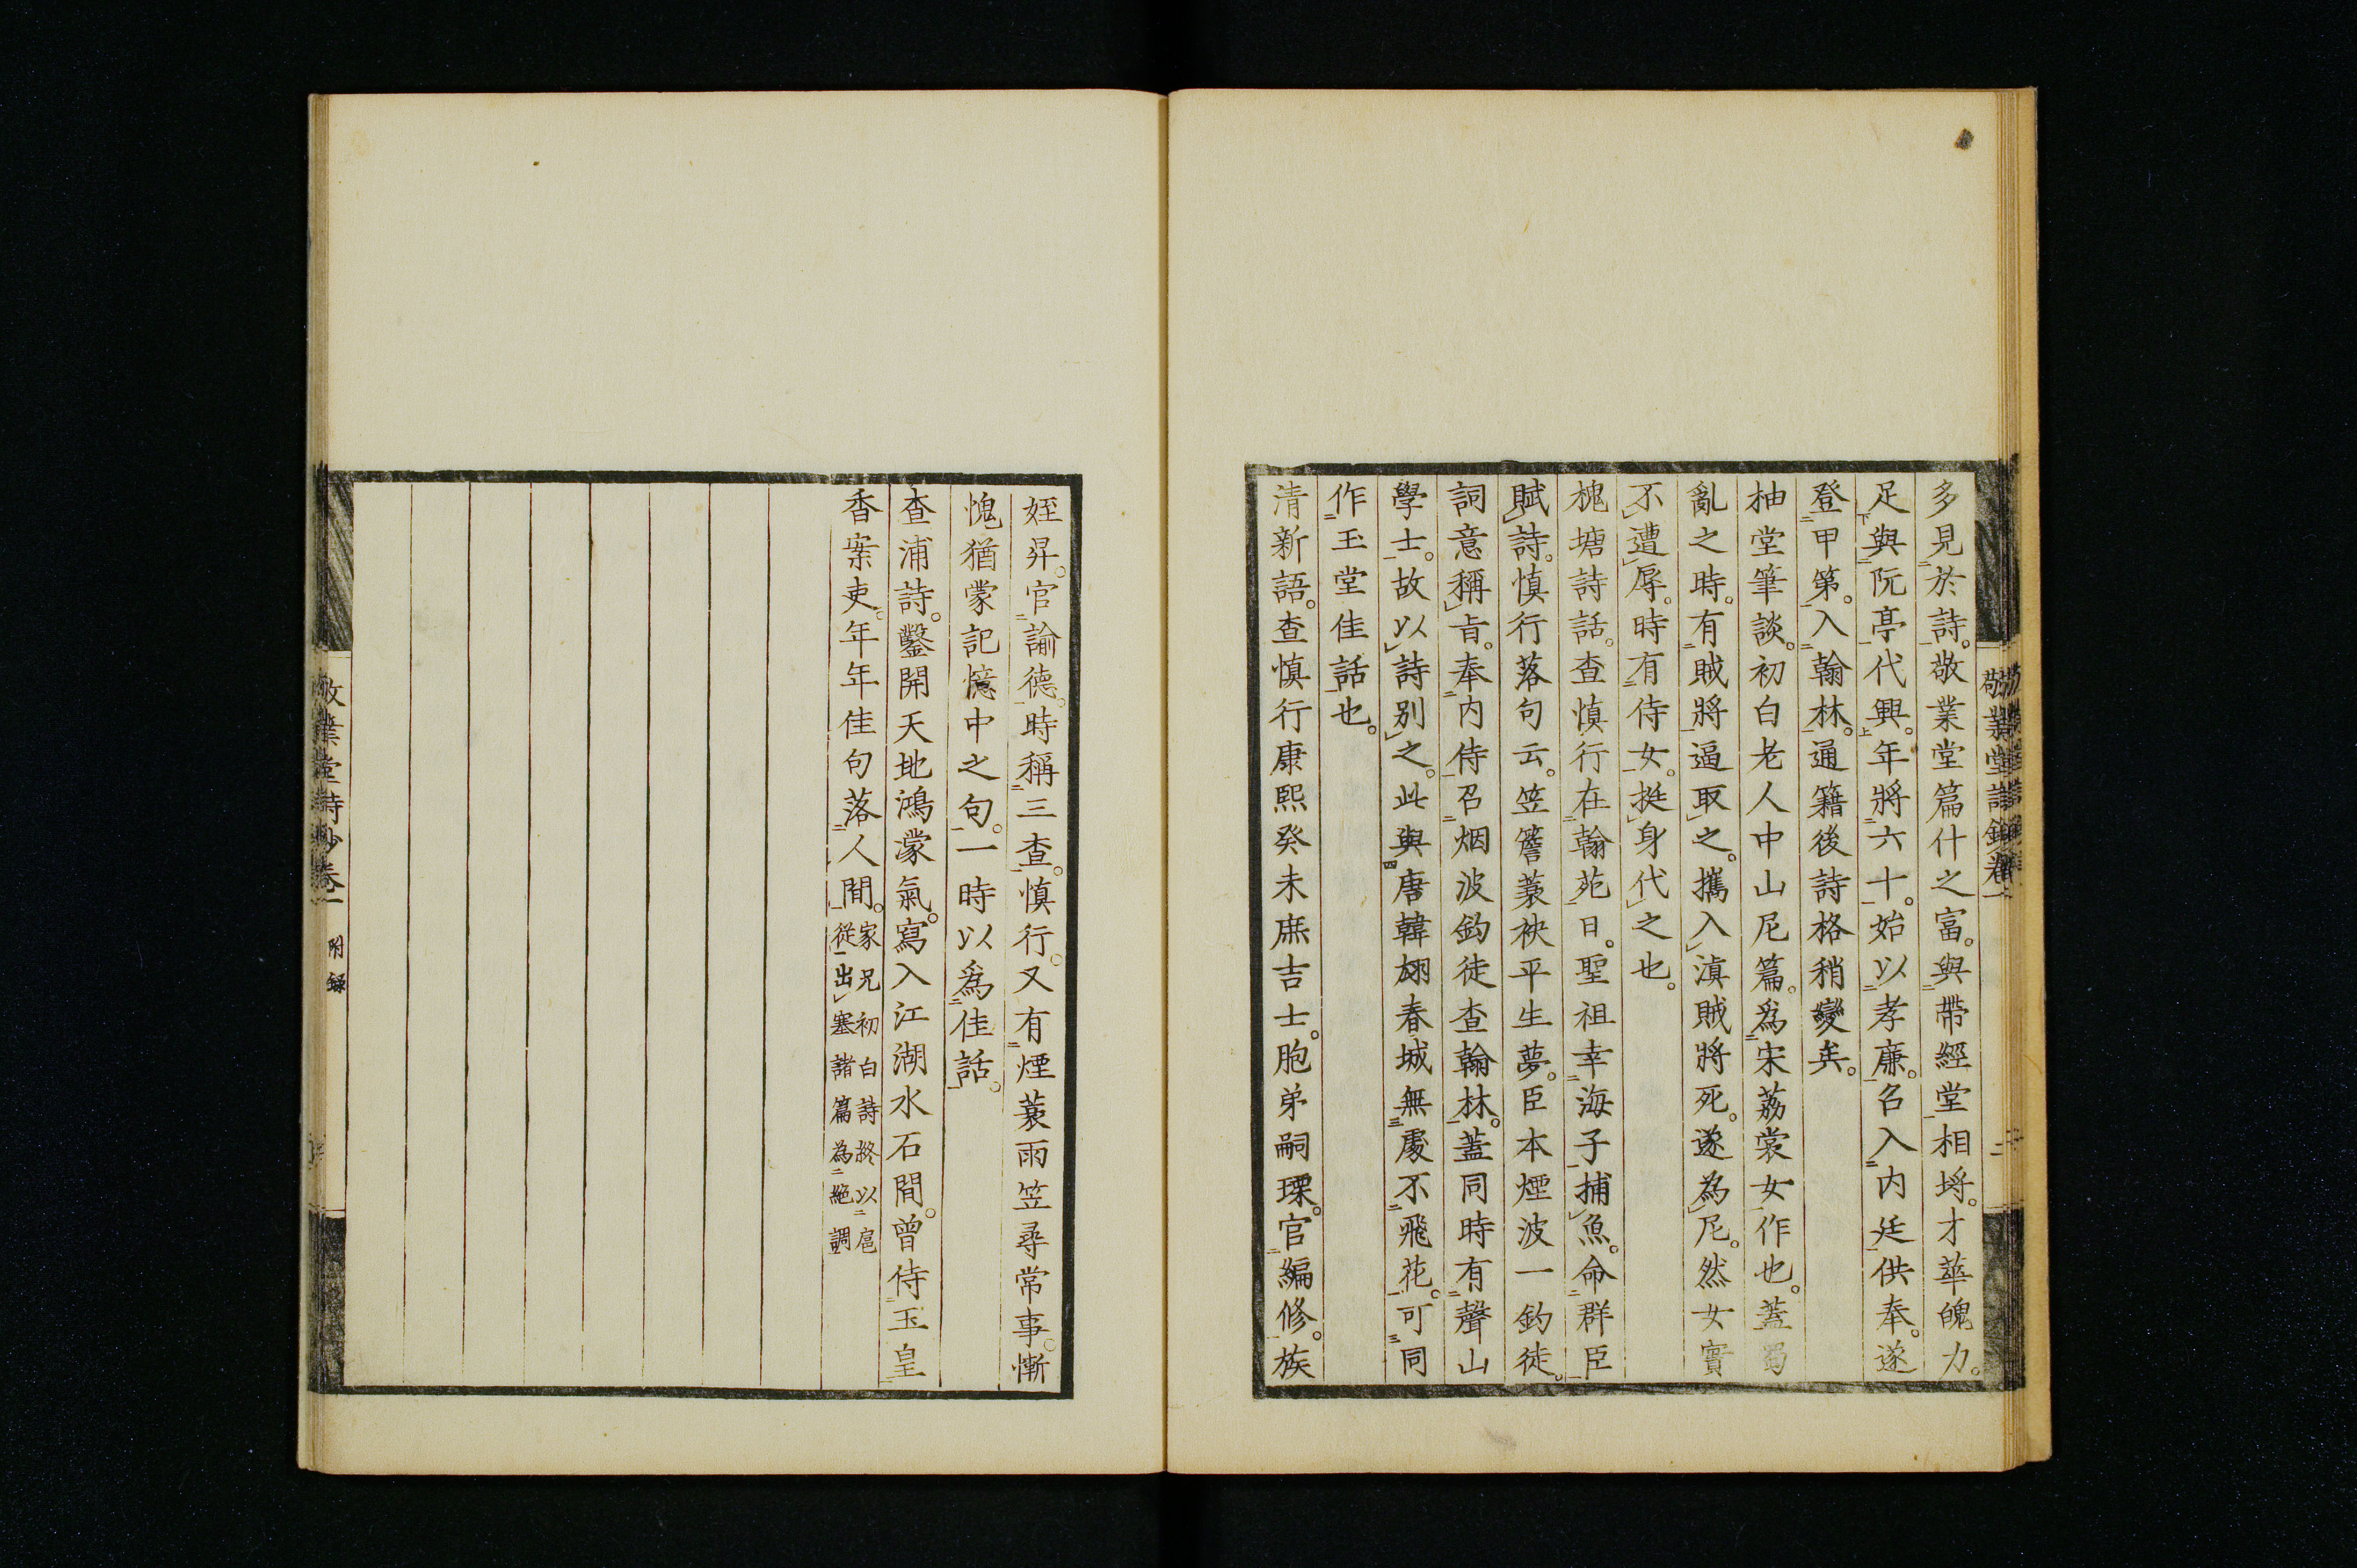 多見於詩。敬業堂篇什之富。與帶經堂相埒。才華魄力。
足與阮亭代興。年將六十。始以孝廉。召入内廷供奉。遂
登甲第。入翰林。通籍後詩格稍變矣。
柚堂筆談。初白老人中山尼篇。爲宋荔裳女作也。蓋蜀
亂之時。有賊將逼取之。攜入滇賊將死。遂為尼。然女實
不遭辱。時有侍女。挺身代之也。
槐塘詩話。查慎行在翰苑日。聖祖幸海子捕魚。命群臣
賦詩。慎行落句云。笠簷蓑袂平生夢。臣本煙波一釣徒。
詞意稱旨。奉内侍召烟波釣徒查翰林。蓋同時有聲山
學士。故以詩别之。此與唐韓翃春城無處不飛花。可同
作玉堂佳話也。
清新語。查慎行康熙癸未庶吉士。胞弟嗣瑮。官編修。族
姪昇。官諭德。時稱三查。慎行。又有煙蓑雨笠尋常事。慚
愧猶蒙記憶中之句。一時以爲佳話。
查浦詩。鑿開天地鴻濛氣。寫入江湖水石間。曾侍玉皇
香案吏。年年佳句落人間。家兄初白詩終以扈
從出塞諸篇為絶調
敬業堂詩鈔卷一 附録